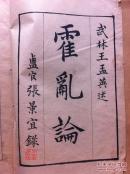 武林王孟英述
霍亂論
盧宦張景宜錄